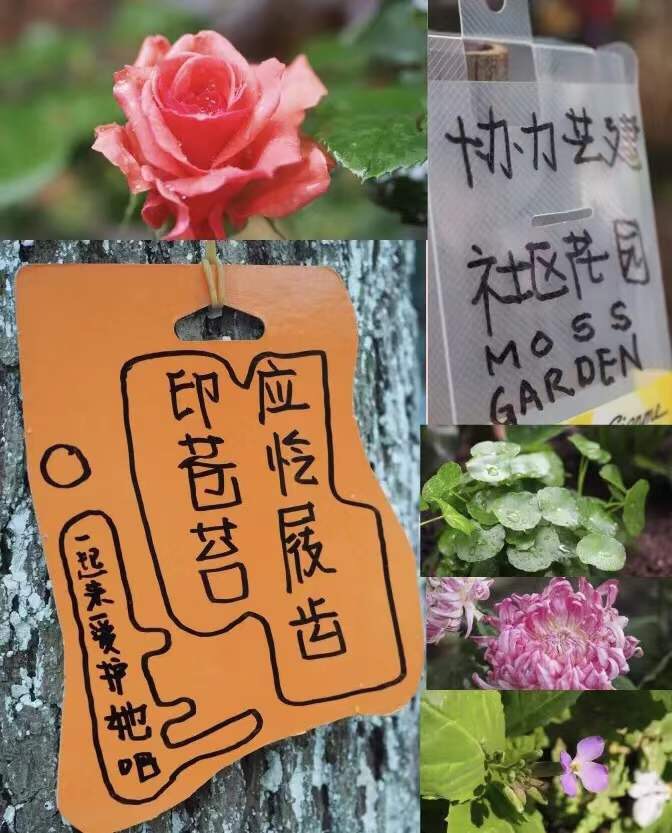 协力芸建
社区花园
MOSS
GARDEN
应怜履齿
印苍苔
一起来爱护她吧